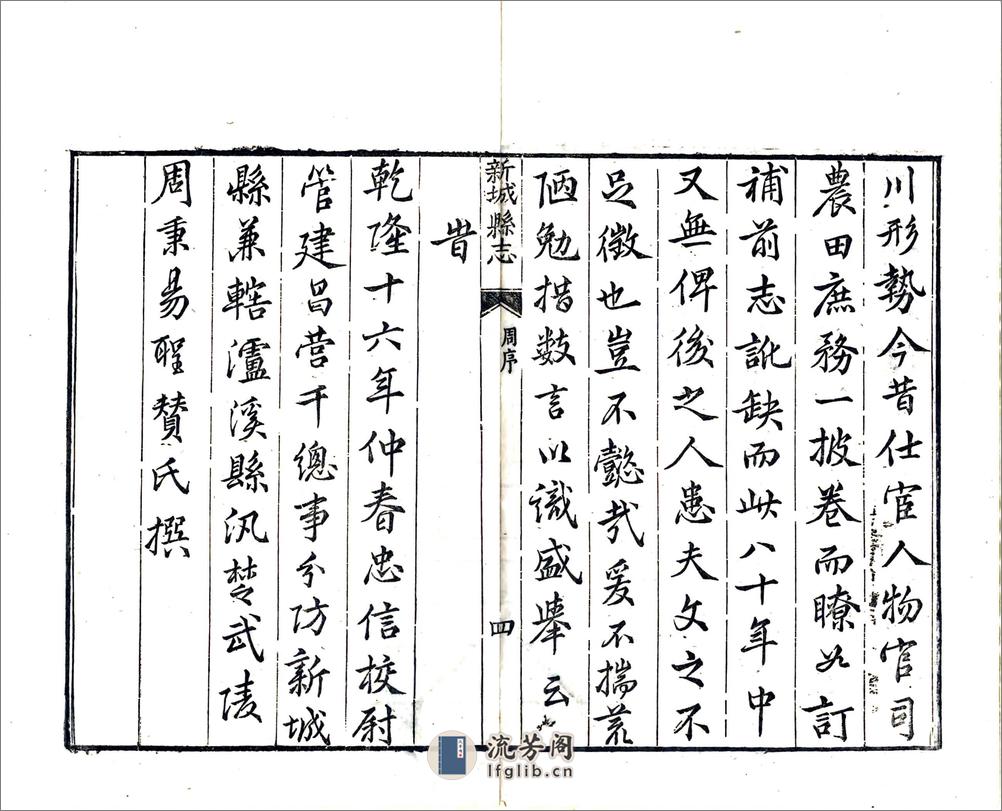 川形勢今昔仕宦人物官司
農田庶務一披卷而瞭如訂
補前志訛缺而此八十年中
又無俾後之人患夫文之不
足徵也豈不懿哉爰不揣荒
陋勉措数言以識盛舉云
新城縣志 周序 四
旹
乾隆十六年仲春忠信校尉
管建昌营千總事分防新城
縣兼轄瀘溪縣汛楚武陵
周秉易聖賛氏撰
流芳阁
lfglib.cn